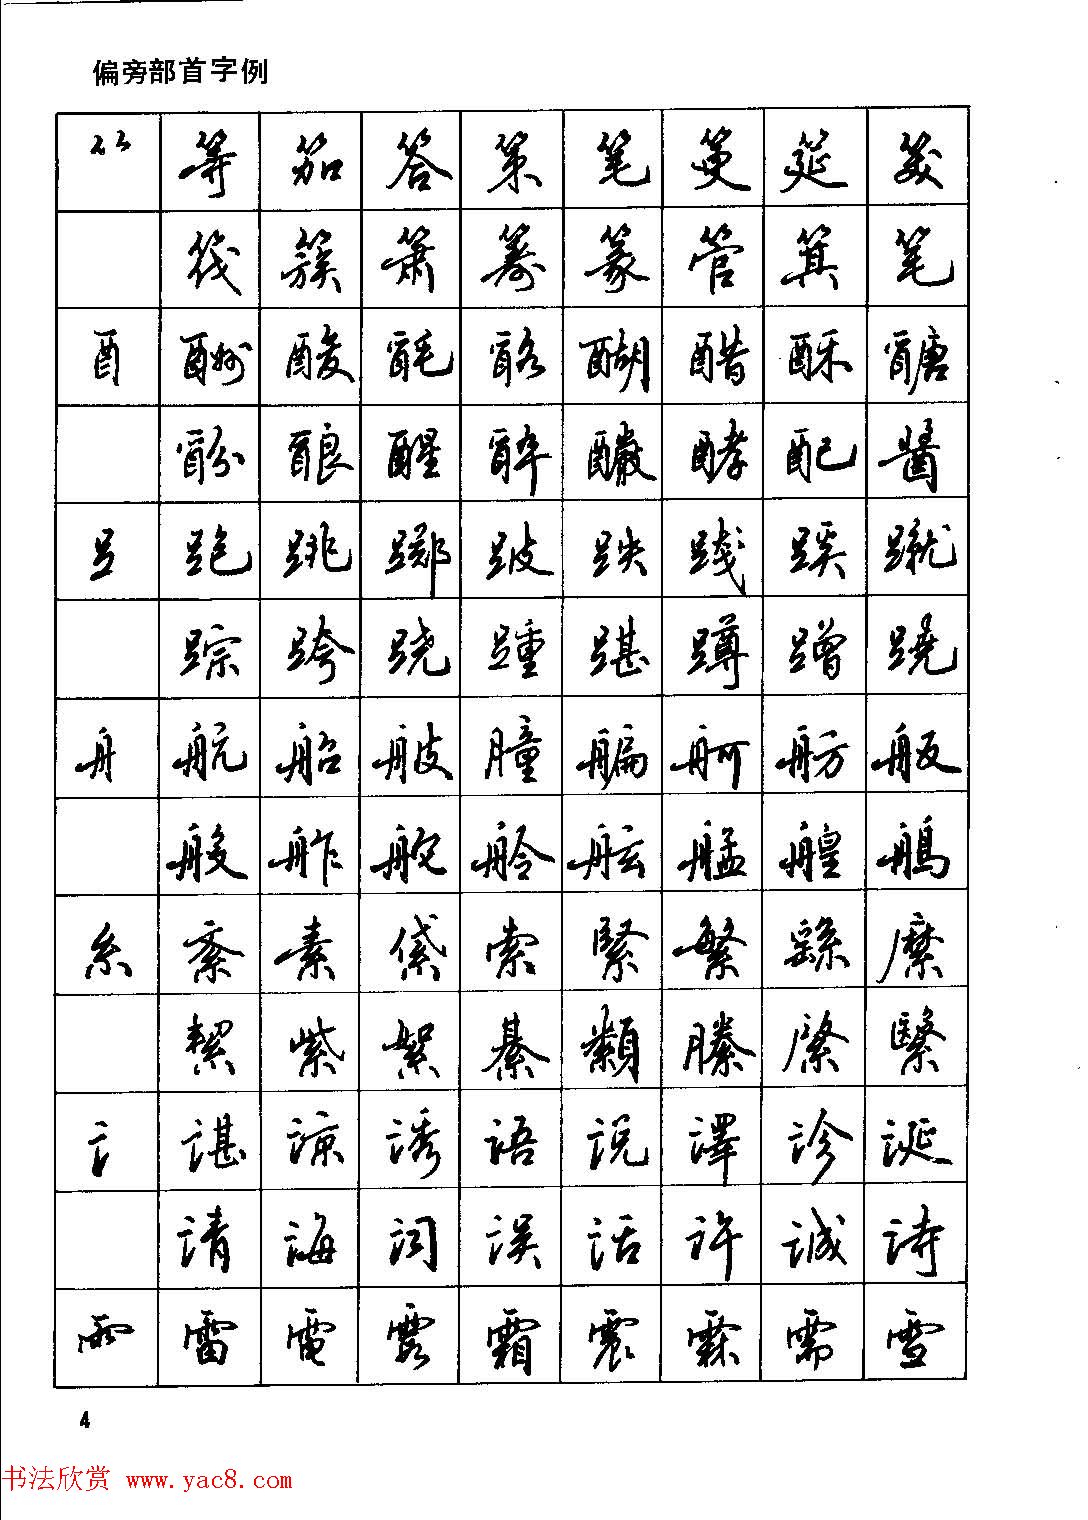 偏旁部首字例
⺮ 等 笳 答 策 笔 筵
筏 簇 箫 筹 篆 管 箕 笔
酉 酬 酸 酕 酪 醐 醋 酥 醣
酚 醒 酵 配 酱
𧾷 跑 跳 踯 跛 跌 践 蹊 蹴
踪 跨 跷 踵 蹲 蹭 蹺
舟 航 船 艟 舸 舫 舨
艘 舴 舵 舲 舷 艋 艎
糸 紊 素 紧 索 緊 繁 繇 縻
絜 紫 絮 綦 纇 縢 綮 繄
讠 谌 谅 诱 语 说 譯 诊 诞
请 诲 词 误 话 许 诚 诗
雨 雷 電 露 霜 震 霖 需 雪
4
书法欣赏 www.yac8.com